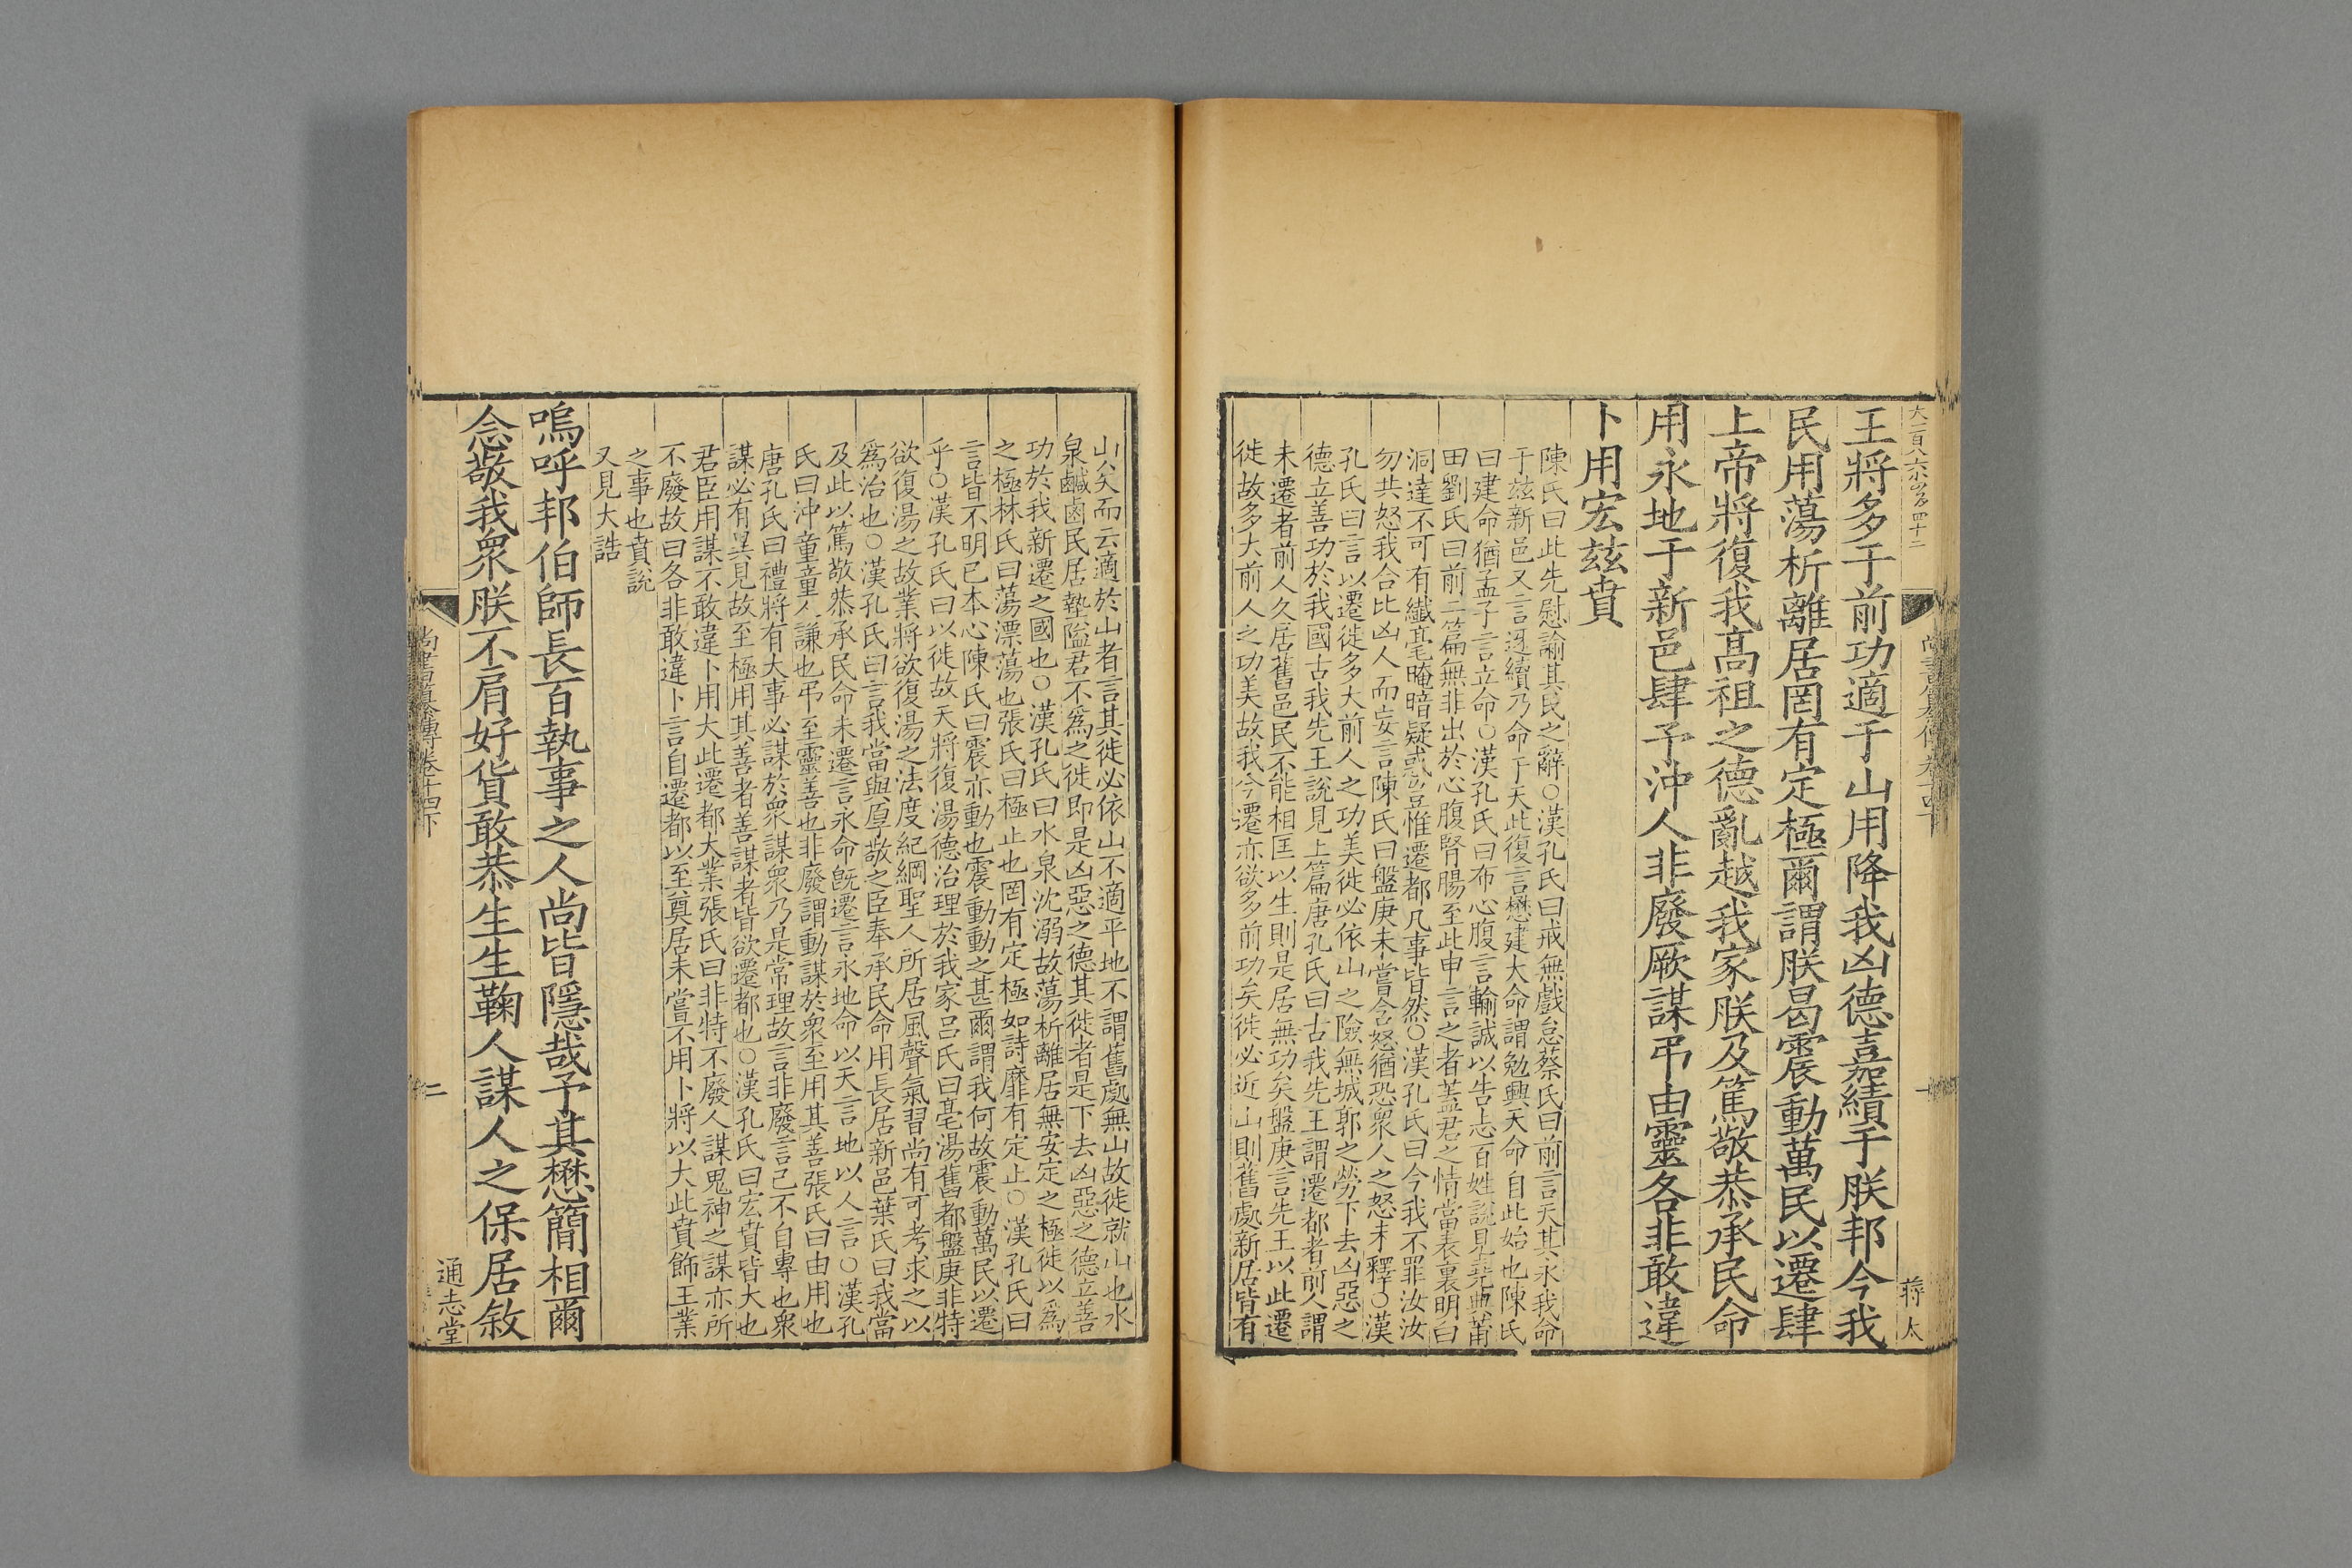 王將多于前功適于山用降我凶德嘉績于朕邦今我
民用蕩析離居罔有定極爾謂朕曷震動萬民以遷肆
上帝將復我高祖之德亂越我家朕及篤敬恭承民命
用永地于新邑肆予沖人非廢厥謀弔由靈各非敢違
卜用宏茲賁
陳氏曰此先慰諭其民之辭○漢孔氏曰戒無戲怠蔡氏曰前言天其永我命
于茲新邑又言迓續乃命于天此復言懋建大命謂勉興天命自此始也陳氏
曰建命猶孟子言立命○漢孔氏曰布心腹言輸誠以告志百姓說見堯典莆
田劉氏曰前二篇無非出於心腹腎腸至此申言之者蓋君之情當表裏明白
洞達不可有纖毫晻暗疑惑豈惟遷都凡事皆然○漢孔氏曰今我不罪汝汝
勿共怒我合比凶人而妄言陳氏曰盤庚未嘗含怒猶恐眾人之怒未釋○漢
孔氏曰言以遷徙多大前人之功美徙必依山之險無城郭之勞下去凶惡之
德立善功於我國古我先王說見上篇唐孔氏曰古我先王謂遷都者前人謂
未遷者前人久居舊邑民不能相匡以生則是居無功矣盤庚言先王以此遷
徙故多大前人之功美故我今遷亦欲多前功矣徙必近山則舊處新居皆有
蔣太
山矣而云適於山者言其徙必依山不適平地不謂舊處無山故徙就山也水
泉鹹鹵民居墊隘君不為之徙即是凶惡之德其徙者是下去凶惡之德立善
功於我新遷之國也○漢孔氏曰水泉沈溺故蕩析離居無安定之極徙以為
之極林氏曰蕩漂蕩也張氏曰極止也罔有定極如詩靡有定止○漢孔氏曰
言皆不明已本心陳氏曰震亦動也震動動之甚爾謂我何故震動萬民以遷
乎○漢孔氏曰以徙故天將復湯德治理於我家呂氏曰亳湯舊都盤庚非特
欲復湯之故業將欲復湯之法度紀綱聖人所居風聲氣習尚有可考求之以
為治也○漢孔氏曰言我當與厚敬之臣奉承民命用長居新邑葉氏曰我當
及此以篤敬恭承民命未遷言永命既遷言永地命以天言地以人言○漢孔
氏曰沖童童人謙也弔至靈善也非廢謂動謀於眾至用其善張氏曰由用也
唐孔氏曰禮將有大事必謀於眾謀眾乃是常理故言非廢言己不自專也眾
謀必有異見故至極用其善者善謀者皆欲遷都也○漢孔氏曰宏賁皆大也
君臣用謀不敢違卜用大此遷都大業張氏曰非特不廢人謀鬼神之謀亦所
不廢故曰各非敢違卜言自遷都以至奠居未嘗不用卜將以大此賁飾王業
之事也賁說
又見大誥
嗚呼邦伯師長百執事之人尚皆隱哉予其懋簡相爾
念敬我眾朕不肩好貨敢恭生生鞠人謀人之保居敘
尚書纂傳卷十四下
二
通志堂